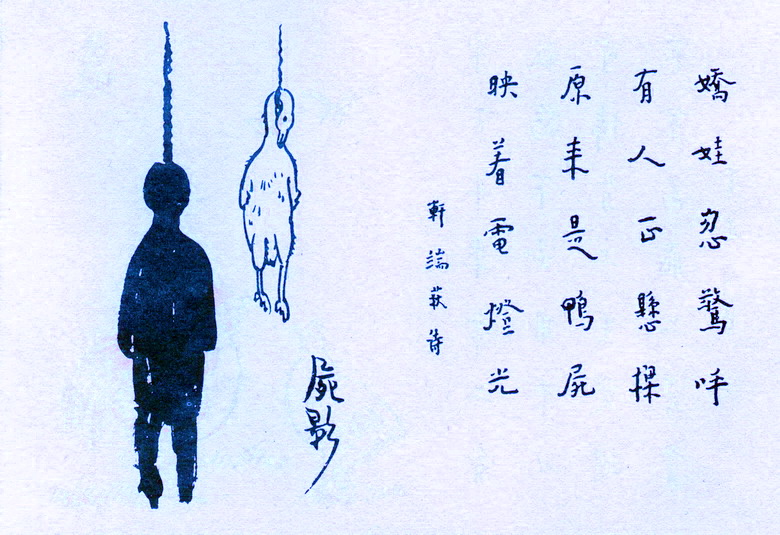 嬌娃忽驚呼
有人正懸樑
原来是鴨屍
映着電燈光
軒端荻詩
屍影